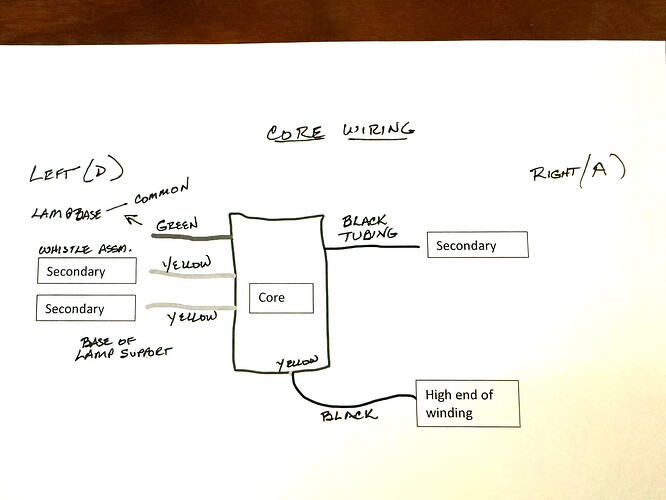 CORE WIRING
LEFT (D)
RIGHT (A)
LAMP BASE — COMMON
GREEN
BLACK
TUBING
Secondary
WHISTLE ASSM.
Secondary
YELLOW
Core
Secondary
YELLOW
BASE OF
LAMP SUPPORT
YELLOW
BLACK
High end of
winding